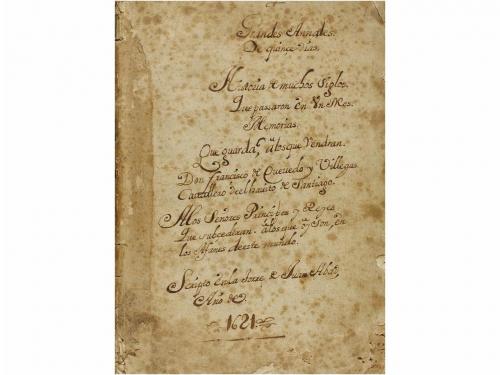 Grandes Annales.
De quince dias.
Historia de muchos siglos.
Que passaron en Vn Mes.
Memorias.
Que guarda, a los que Vendran.
Don Francisco de Quevedo y Villegas
Cavallero del havito de Santiago.
A los Señores Principes y Reyes
Que subcederan. a los que oy son, en
los Afanes de este mundo.
Scripto En la Torre de Juan Abad,
Año de
1621